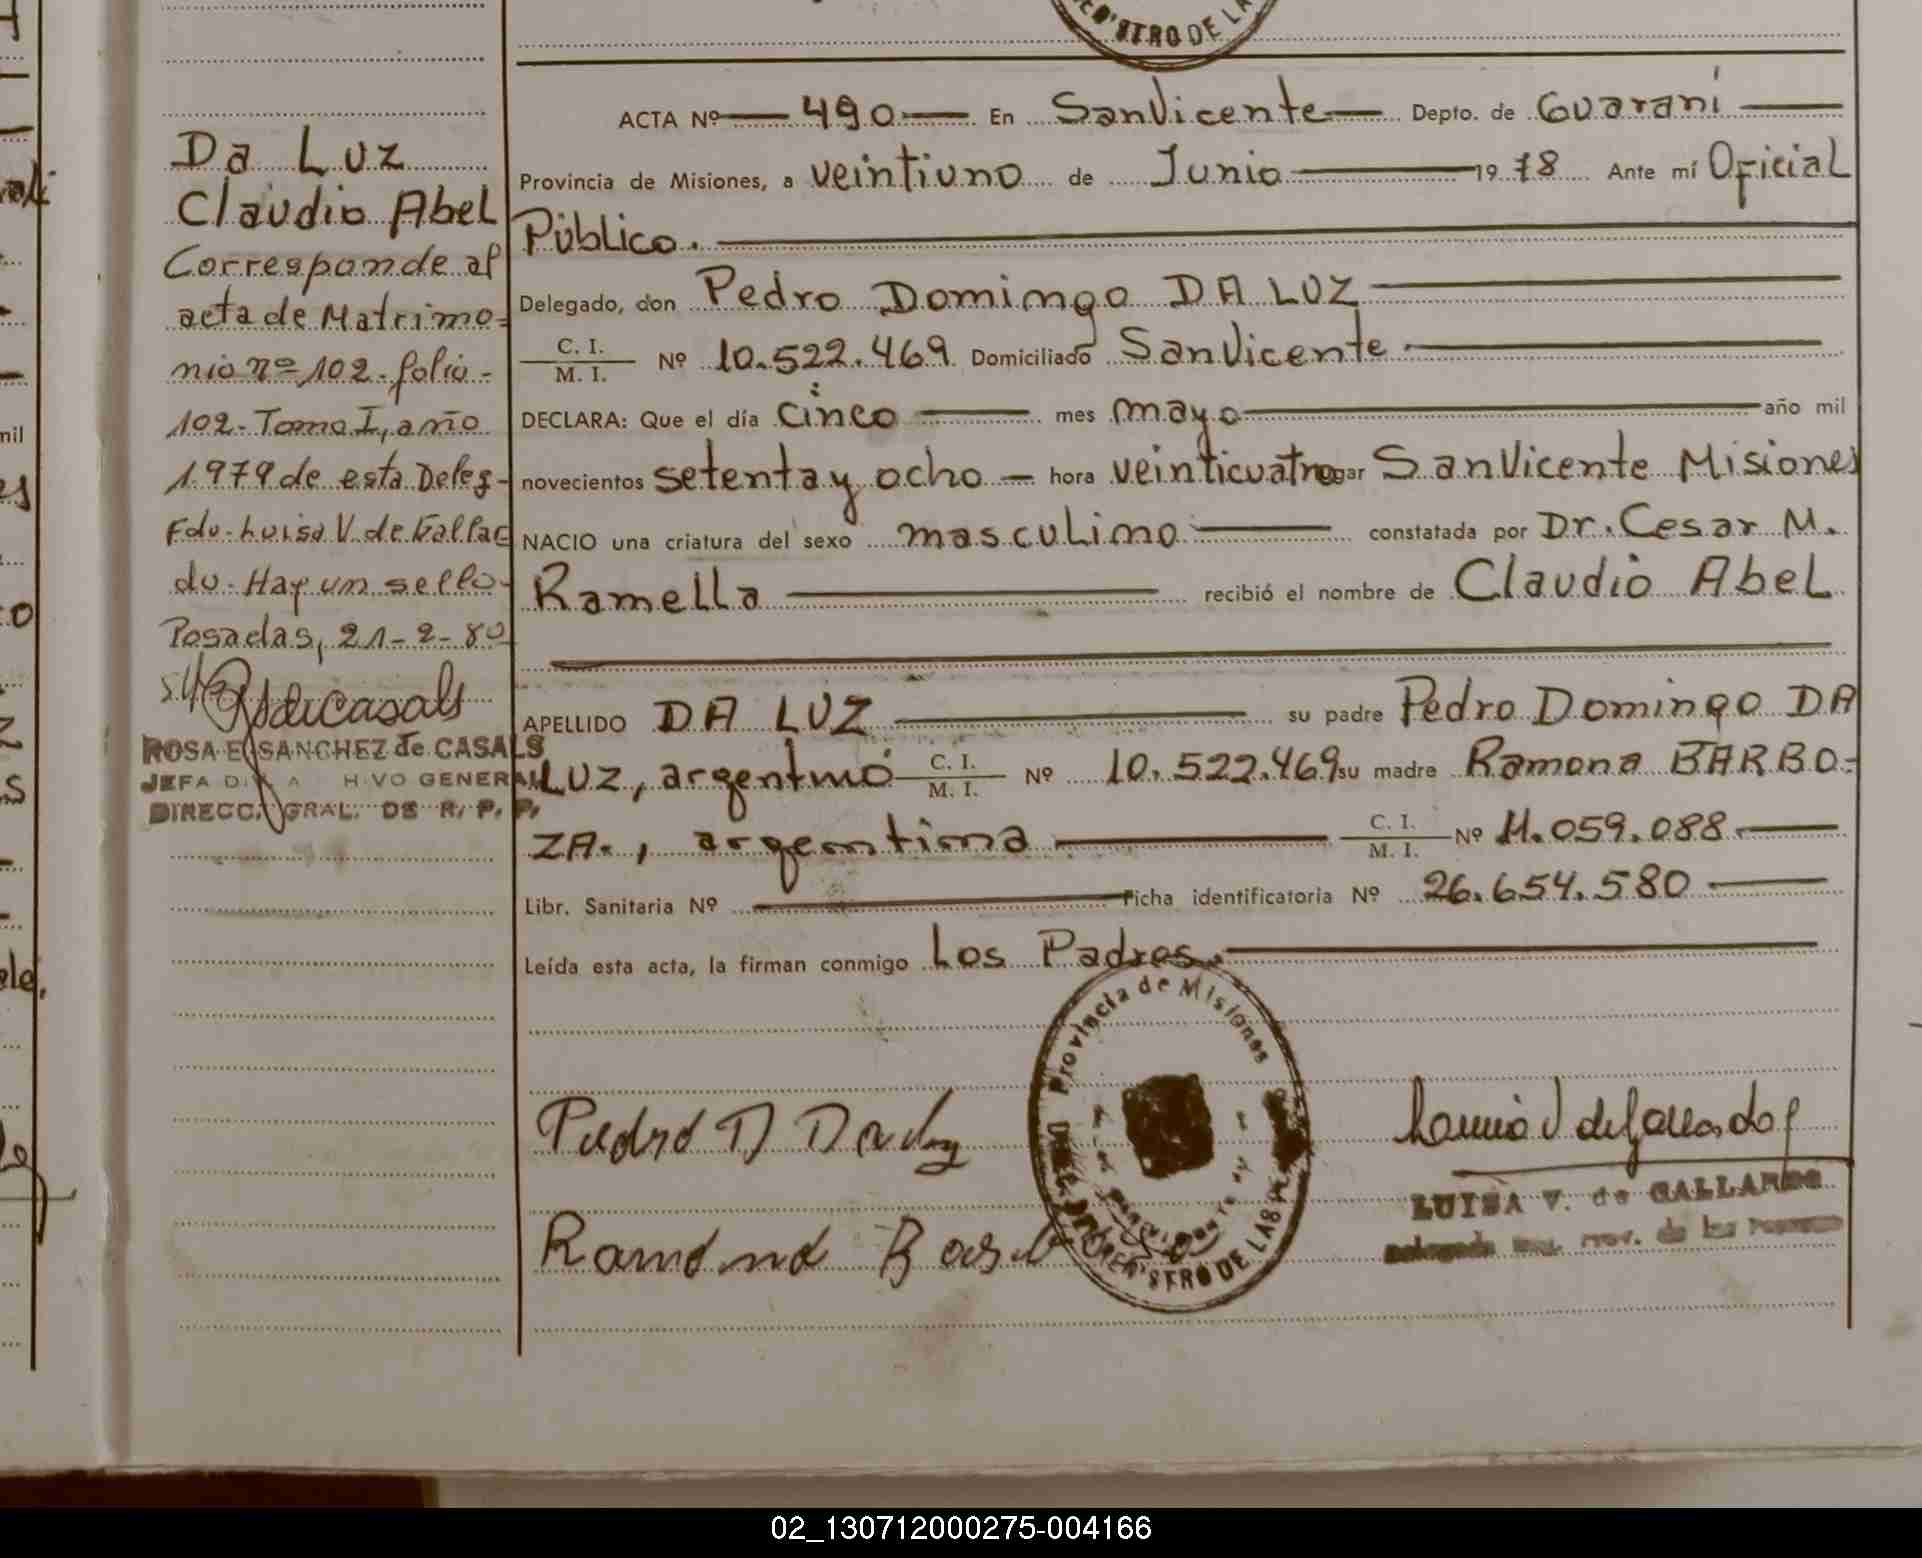 Da Luz
Claudio Abel
Corresponde al
acta de Matrimo=
nio nº 102- folio-
102- Tomo I, año
1979 de esta Deleg-
Fdo- Luisa V. de Gallar
do- Hay un sello-
Posadas, 21-2-80
ROSA E. SANCHEZ de CASALS
JEFA D A HIVO GENERAL
DIRECC. GRAL. DE R. P. P.
STRO DE LA
ACTA Nº 490 En San Vicente Depto. de Guaraní
Provincia de Misiones, a veintiuno de Junio 1978 Ante mí Oficial
Público.
Delegado, don Pedro Domingo DA LUZ
C. I.
M. I. Nº 10.522.469 Domiciliado San Vicente
DECLARA: Que el día cinco mes mayo año mil
novecientos setenta y ocho hora veinticuatro gar San Vicente Misiones
NACIO una criatura del sexo masculino constatada por Dr. Cesar M.
Ramella recibió el nombre de Claudio Abel
APELLIDO DA LUZ su padre Pedro Domingo DA
LUZ, argentino C. I.
M. I. Nº 10.522.469 su madre Ramona BARBO=
ZA., argentina C. I.
M. I. Nº 11.059.088
Libr. Sanitaria Nº Ficha identificatoria Nº 26.654.580
Leída esta acta, la firman conmigo Los Padres.
Provincia de Misiones
STRO DE LAS
Pedro D Daluz
Ramona
Luisa V de Gallardo
LUISA V. de GALLARDO
mil
02_130712000275-004166